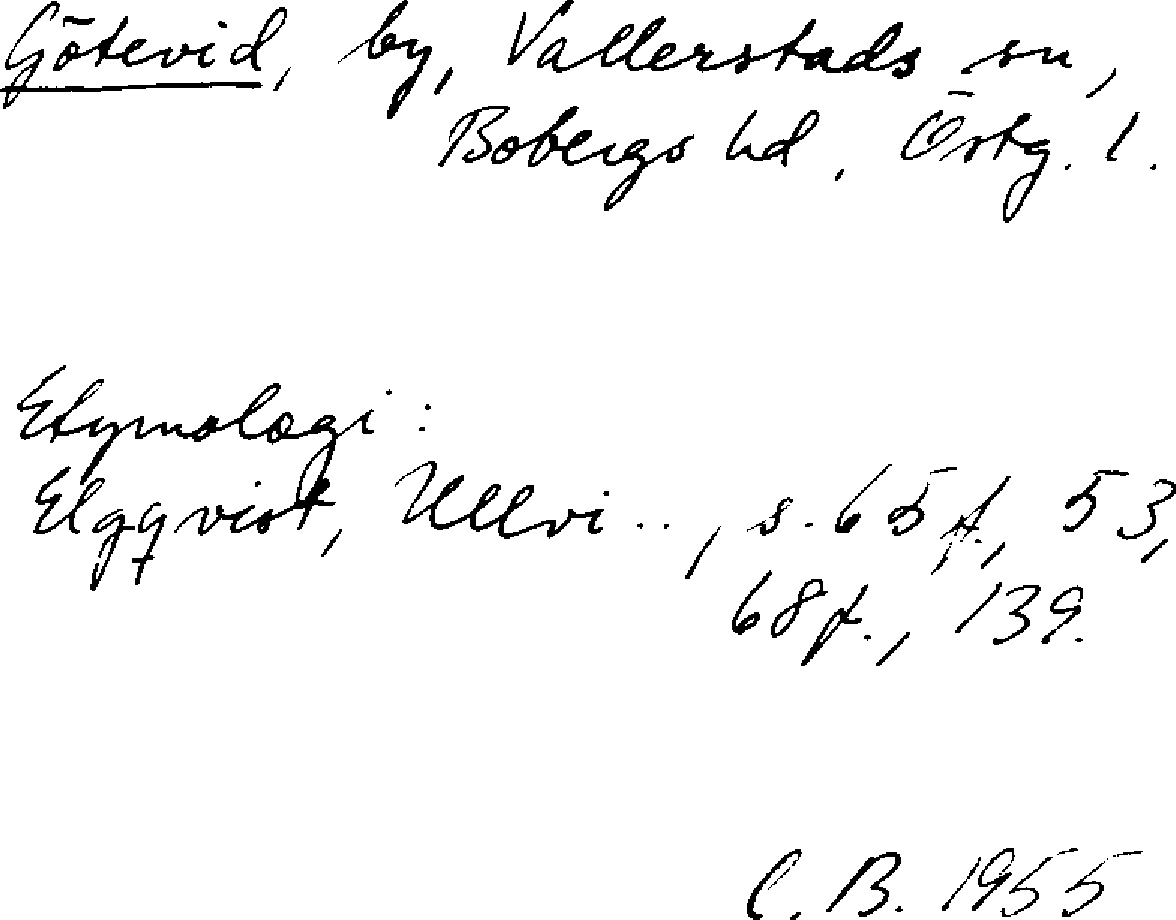 Götevid, by, Vallerstads sn,
Bobergs hd, Östg. l.
Etymologi:
Elgqvist, Ullvi.., s. 65 f., 53,
68f., 139.
C. B. 1955